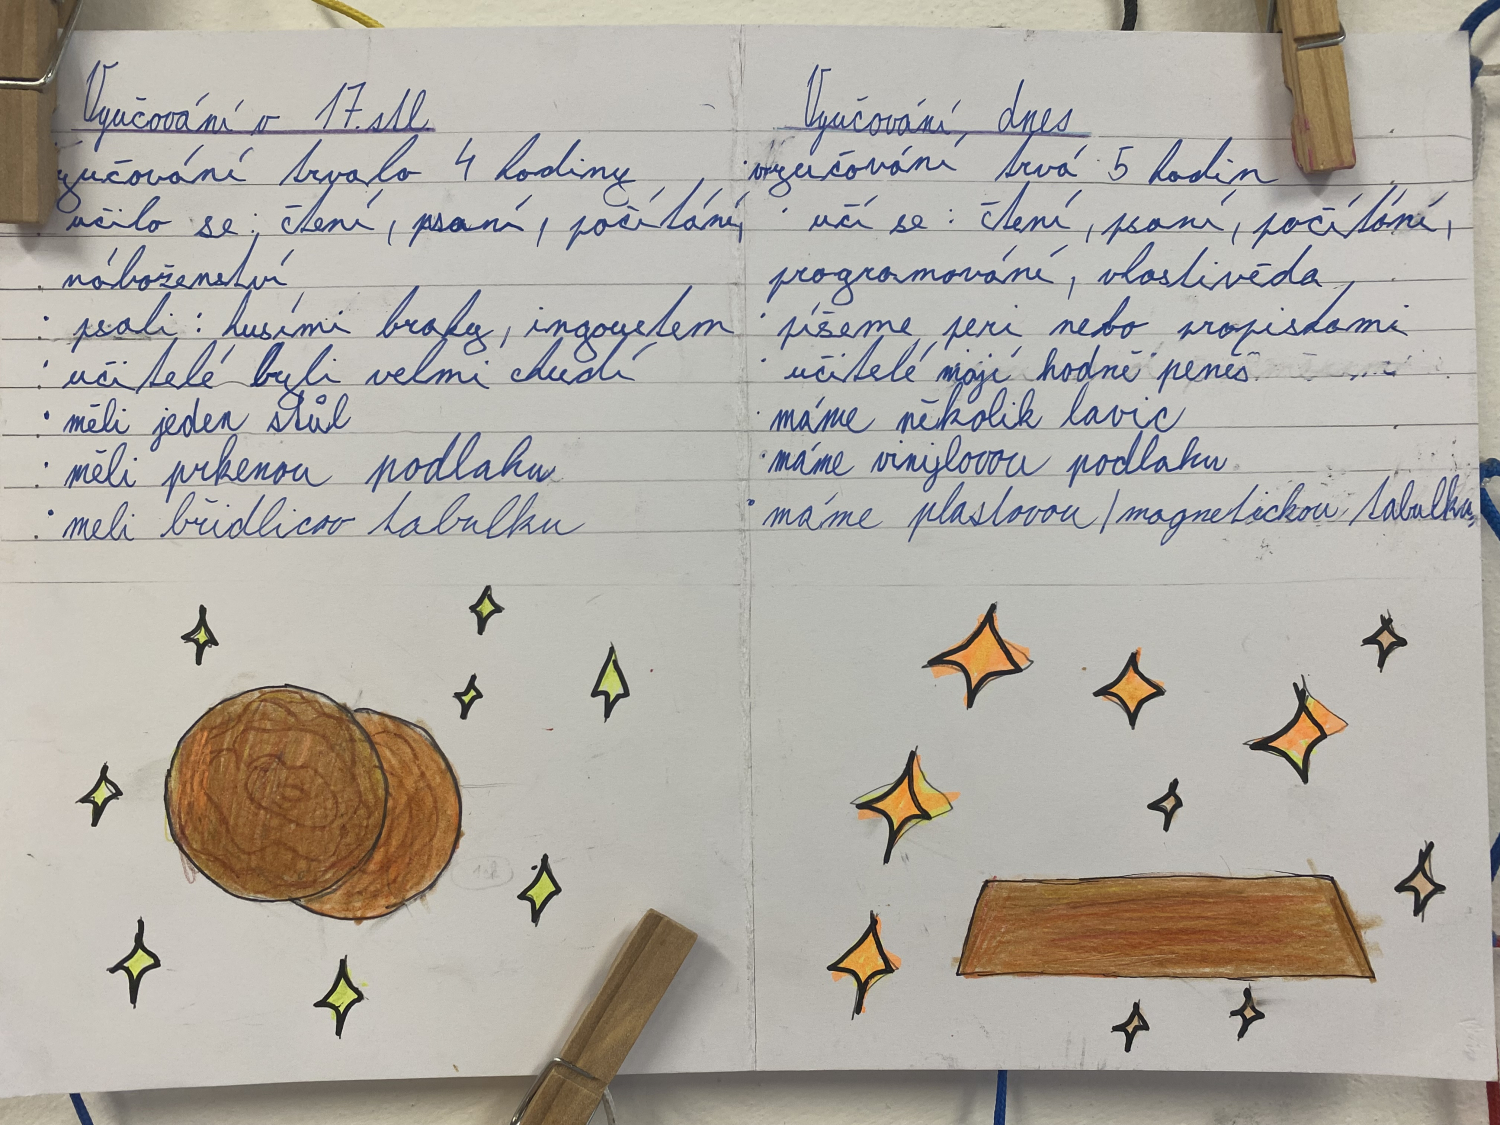 Vyučování v 17.stl
vyučování trvalo 4 hodiny
· učilo se: čtení, psaní, počítání,
· náboženství
· psali: husími braky, ingoustem
· učitelé byli velmi chudí
· měli jeden stůl
· měli prkenou podlahu
· meli břidlicov tabulku
Vyučování, dnes
· vyučování trvá 5 hodin
· učí se: čtení, psaní, počítání,
programování, vlastivěda,
· píšeme peri nebo propiskami
· učitelé mají hodně peněš
· máme několik lavic
· máme vinylovou podlahu
· máme plastovou/magnetickou tabulku,